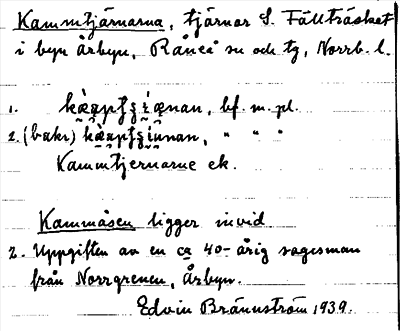 Kammtjärnarna, tjärnar S. Fällträsket
i byn Årbyn, Råneå sn och tg, Norrb. l.
1. bf. m. pl.
2. (bakr) " " "
Kammtjernarne ek.
Kammåsen ligger invid
2. Uppgiften av en ca 40-årig sagesman
från Norrgrenen, Årbyn.
Edvin Brännström 1939.